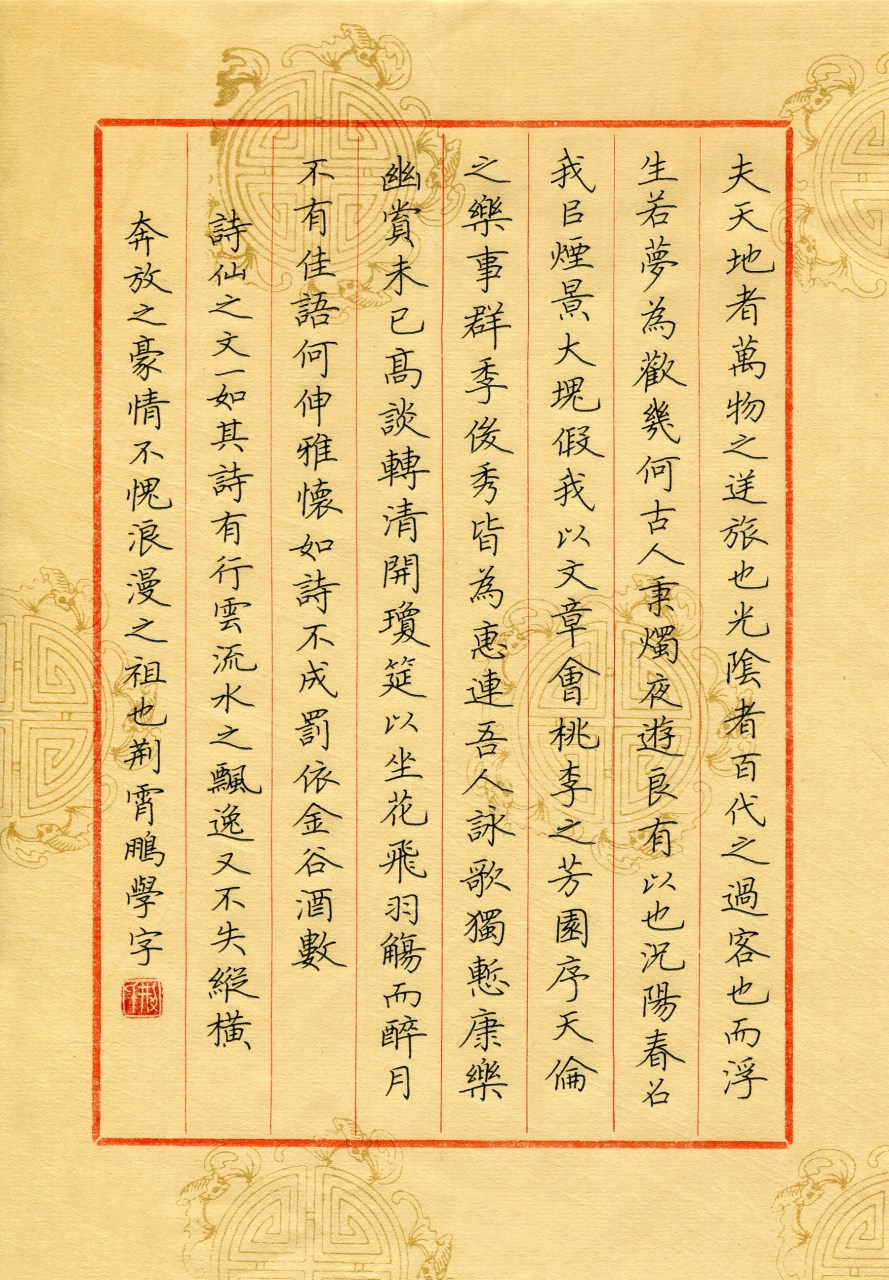 夫天地者萬物之逆旅也光陰者百代之過客也而浮
生若夢為歡幾何古人秉燭夜遊良有以也況陽春召
我㠯煙景大塊假我以文章會桃李之芳園序天倫
之樂事群季俊秀皆為惠連吾人詠歌獨慙康樂
幽賞未已高談轉清開瓊筵以坐花飛羽觴而醉月
不有佳語何伸雅懷如詩不成罰依金谷酒數
詩仙之文一如其詩有行雲流水之飄逸又不失縱橫
奔放之豪情不愧浪漫之祖也荊霄鵬學字